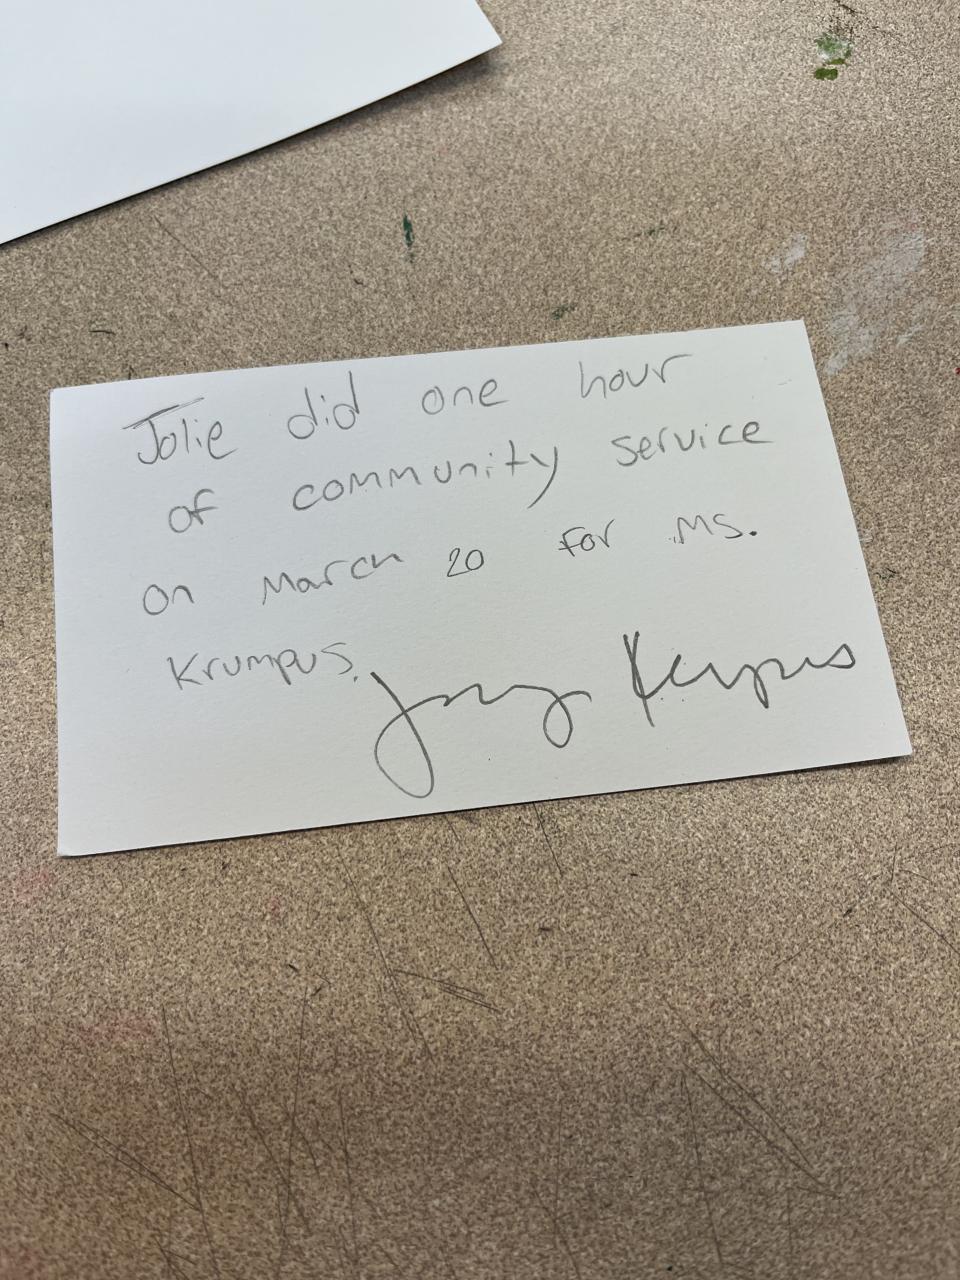 Jolie did one hour
of community service
on March 20 for Ms.
Krumpus.